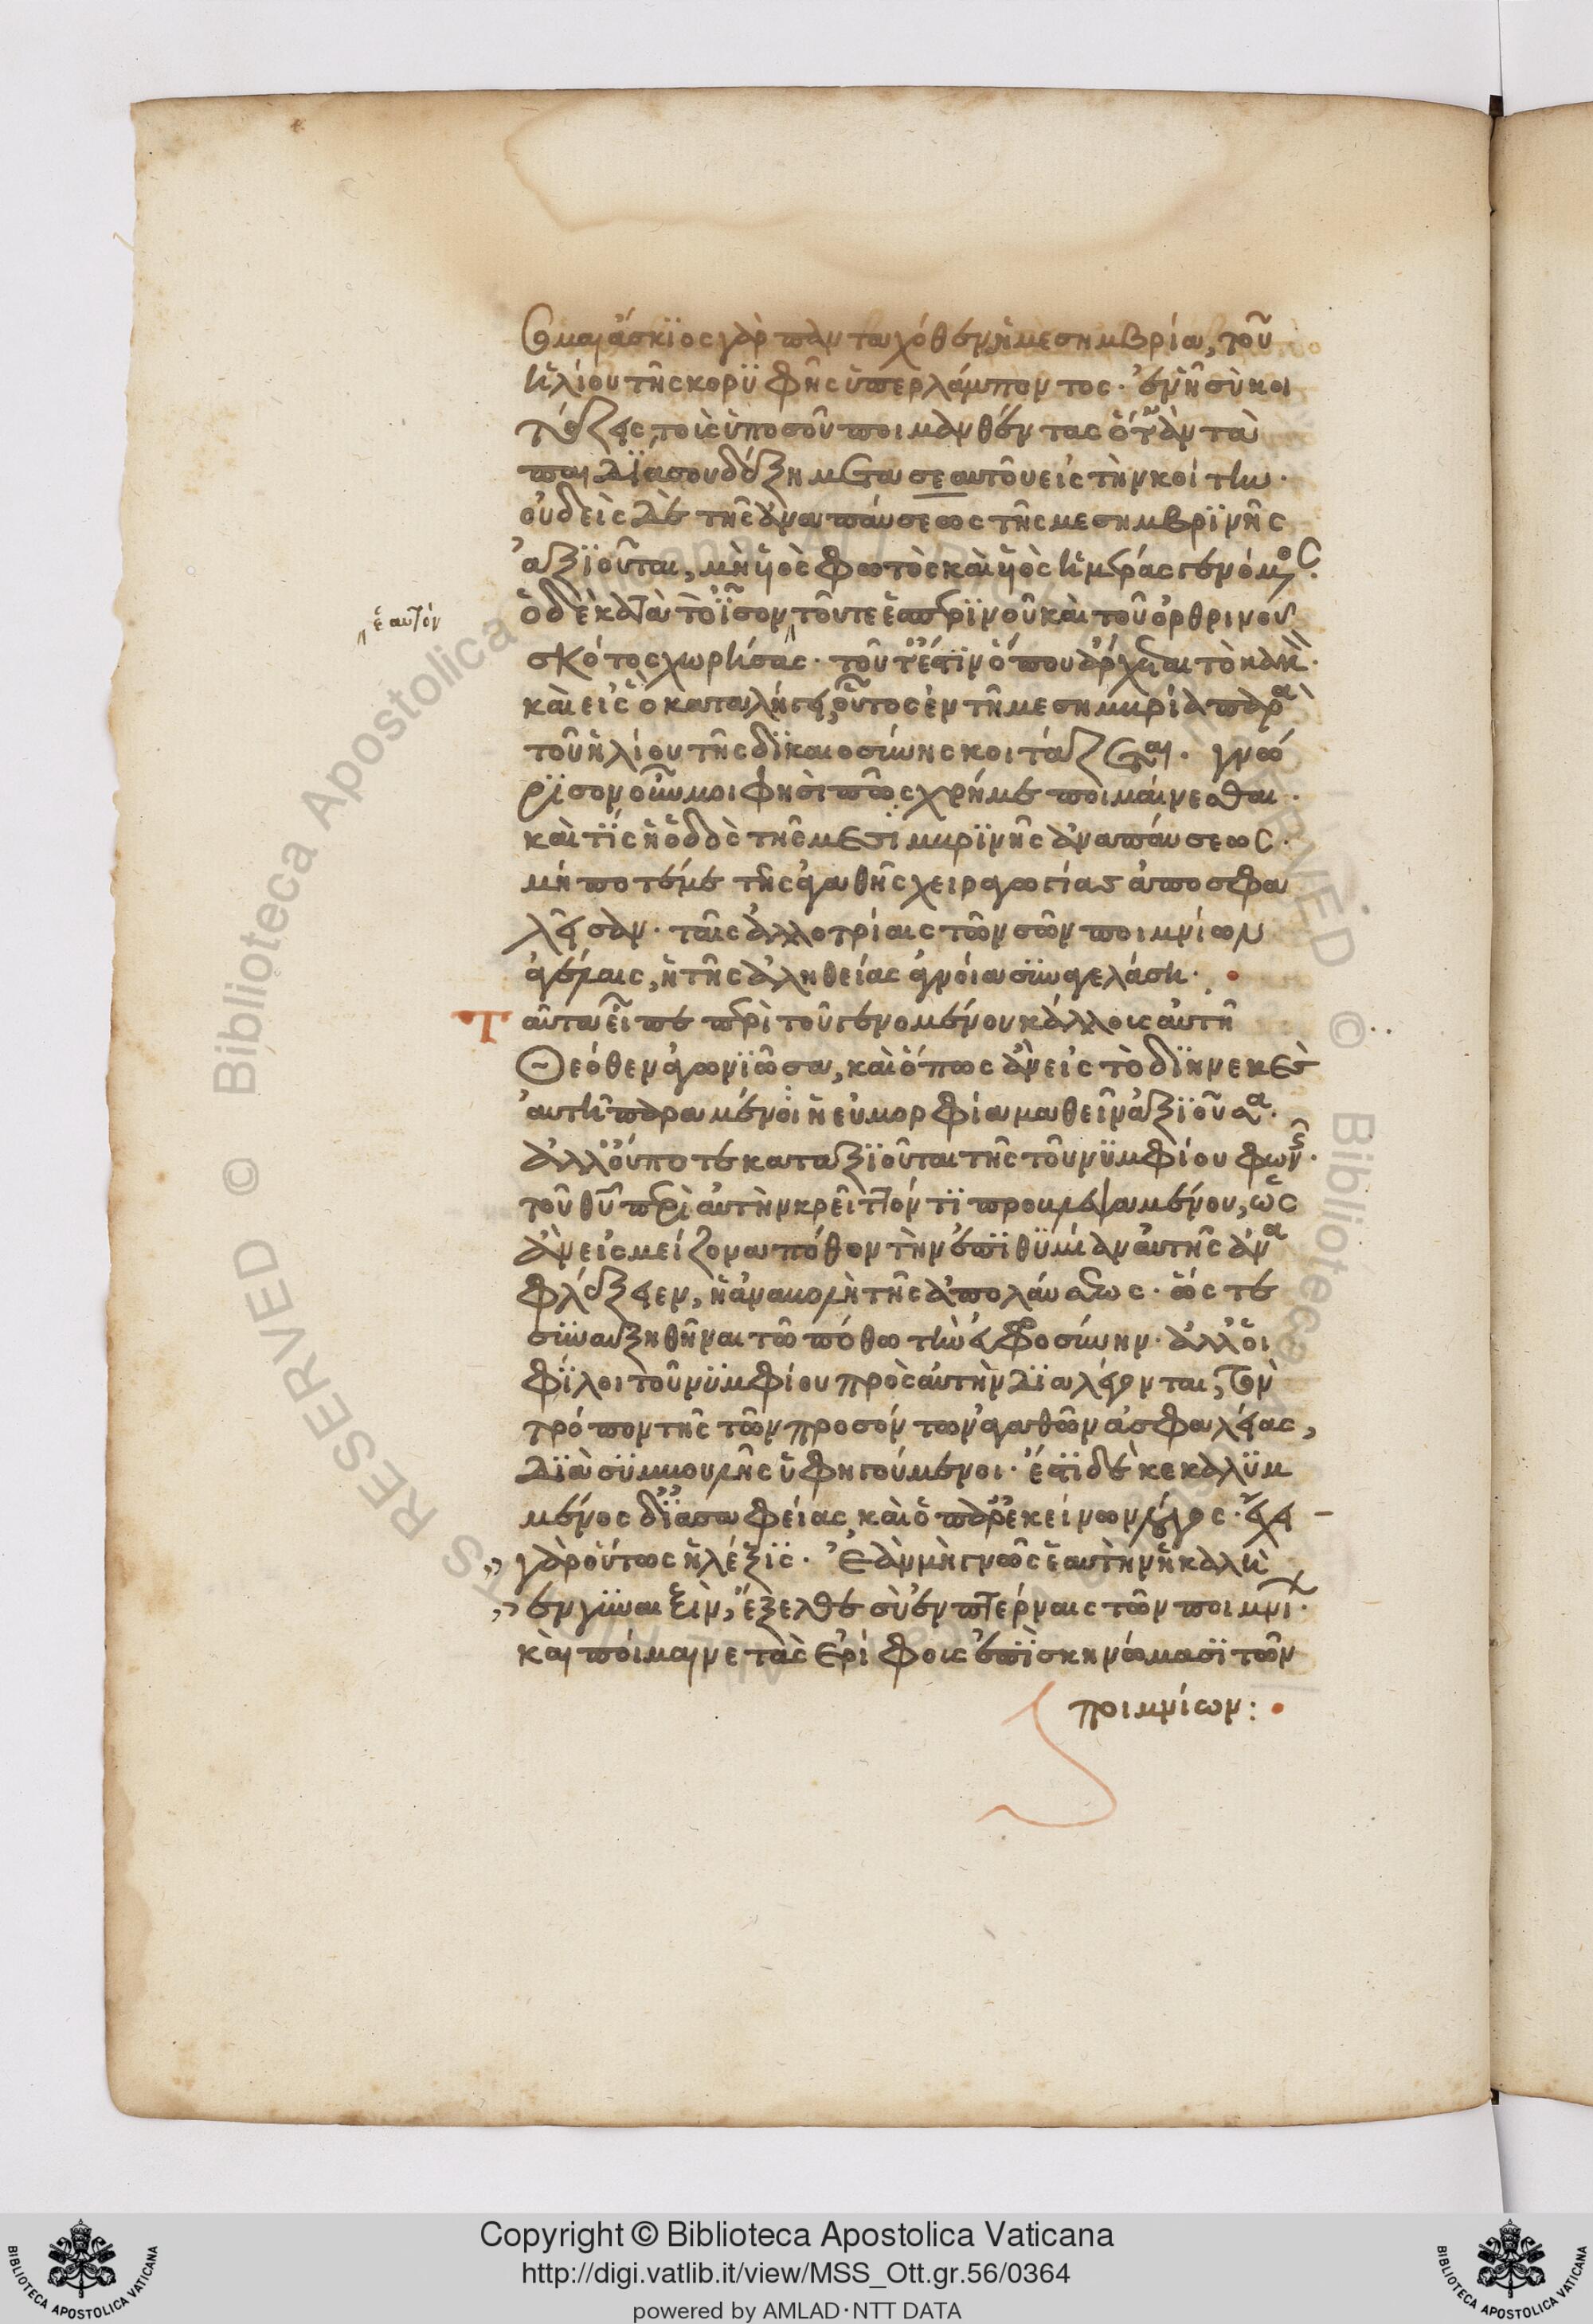 ται ἄσκιος γὰρ πανταχόθεν ἡ μεσημβρία, τοῦ
ἡλίου τῆς κορυφῆς ὑπερλάμποντος· ἐν ᾗ σὺ κοι
τάζεις τοὺς ὑπὸ σοῦ ποιμανθέντας ὅταν τὰ
παιδία σου δέξῃ μετὰ σεαυτοῦ εἰς τὴν κοίτην·
οὐδεὶς δὲ τῆς ἀναπαύσεως τῆς μεσημβρινῆς
ἀξιοῦται, μὴ υἱὸς φωτὸς καὶ υἱὸς ἡμέρας γενόμενος·
ὁ δὲ κατὰ τὸ ἴσον τοῦ τε ἑσπερινοῦ καὶ τοῦ ὀρθρινοῦ
ἑαυτὸν
σκότος χωρίσας· τουτέστιν ὅπου ἄρχεται τὸ κακὸν·
καὶ εἰς ὃ καταλήγει, οὗτος ἐν τῇ μεσημβρία παρὰ
τοῦ ἡλίου τῆς δικαιοσύνης κοιτάζεται· γνώ
ρισον οὖν μοι φησὶ πῶς χρή με ποιμαίνεσθαι·
καὶ τίς ἡ ὁδὸς τῆς μεσημβρινῆς ἀναπαύσεως·
μή ποτέ με τῆς ἀγαθῆς χειραγωγίας ἀποσφα
λεῖσαν· ταῖς ἀλλοτρίαις τῶν σῶν ποιμνίων
ἀγέλαις, ἡ τῆς ἀληθείας ἄγνοια συναγελάσῃ·
Ταῦτα εἶπε περὶ τοῦ γενομένου κάλλοις αὐτῇ
Θεόθεν ἀγωνιῶσα, καὶ ὅπως ἂν εἰς τὸ διηνεκὲς
αὐτῇ παραμένοι ἡ εὐμορφία μαθεῖν ἀξιοῦσα·
ἀλλ' οὔποτε καταξιοῦται τῆς τοῦ νυμφίου φωνῆς·
τοῦ θυ περὶ αὐτὴν κρεῖττόν τι προβλεψαμένου, ὡς
ἂν εἰς μείζονα πόθον τὴν ἐπιθυμίαν αὐτῆς ἀνα
φλέξειεν, ἡ ἀναβολὴ τῆς ἀπολαύσεως· ὥστε
συναυξηθῆναι τῷ πόθῳ τὴν εὐφροσύνην· ἀλλ' οἱ
φίλοι τοῦ νυμφίου πρὸς αὐτὴν διαλέγονται, τὸν
τρόπον τῆς τῶν προσόντων ἀγαθῶν ἀσφαλείας,
διὰ συμβουλῆς ὑφηγούμενοι· ἔστι δὲ κεκαλυμ
μένος δι' ἀσαφείας, καὶ ὁ παρ' ἐκείνων λόγος· ἔχει
γὰρ οὕτως ἡ λέξις· Ἐὰν μὴ γνῷς ἑαυτὴν ἡ καλὴ
ἐν γυναιξὶν, ἔξελθε σὺ ἐν πτέρναις τῶν ποιμνίων·
καὶ ποίμαινε τὰς ἐρίφοις ἐπὶ σκηνώμασι τῶν
ποιμνίων:
Copyright © Biblioteca Apostolica Vaticana
http://digi.vatlib.it/view/MSS_Ott.gr.56/0364
powered by AMLAD·NTT DATA